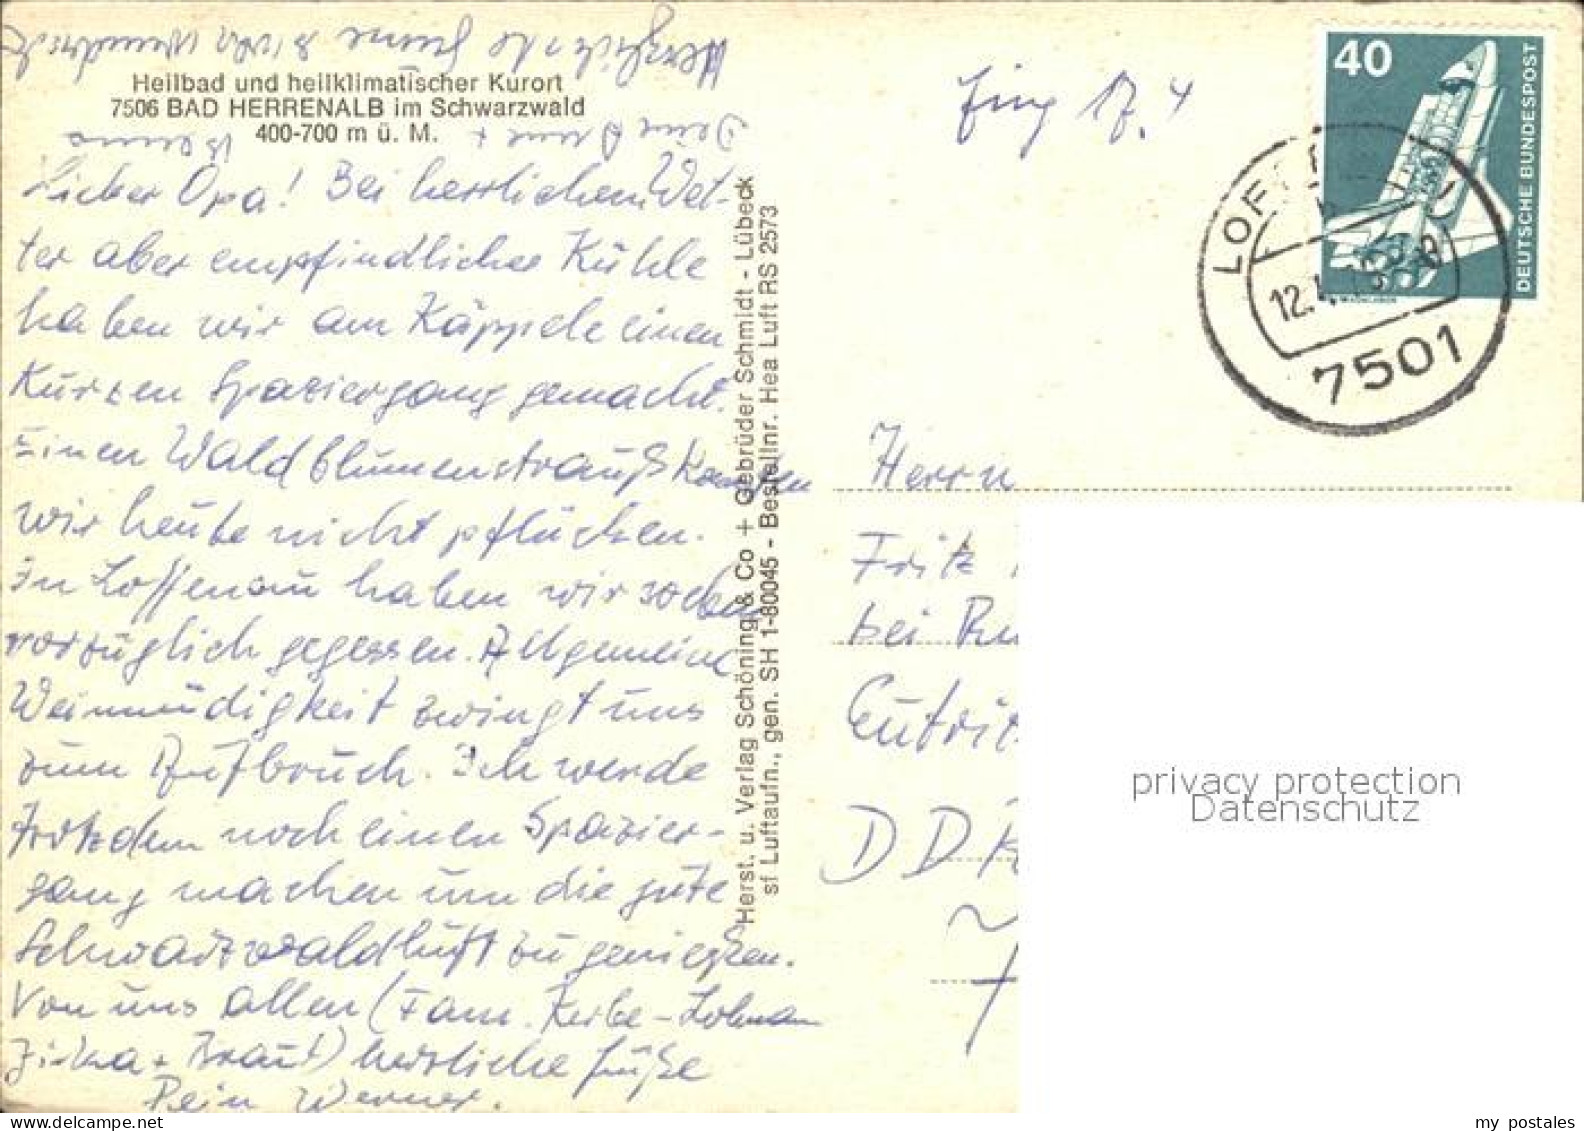 Herzliche
Heilbad und heilklimatischer Kurort
7506 BAD HERRENALB im Schwarzwald
400-700 m ü. M.
Lieber Opa! Bei herrlichem Wet-
ter aber empfindlicher Kühle
haben wir am Käppele einen
kurzen Spaziergang gemacht.
Einen Waldblumenstrauß konnten
wir heute nicht pflücken.
In Loffenau haben wir soeben
vorzüglich gegessen. Allgemeine
zwingt uns
zum Aufbruch. Ich werde
trotzdem noch einen Spazier-
gang machen um die gute
Schwarzwaldluft zu genießen.
Von uns allen (Fam.
+ Braut) herzliche Grüße
Dein Werner.
Herst. u. Verlag Schöning & Co + Gebrüder Schmidt - Lübeck
sf Luftaufn., gen. SH 1-80045 - Bestellnr. Hea Luft RS 2573
17. 4
40
DEUTSCHE BUNDESPOST
12.
7501
Herrn
Fritz
bei Ru
Eutrit
DDR
7
privacy protection
Datenschutz
my postales